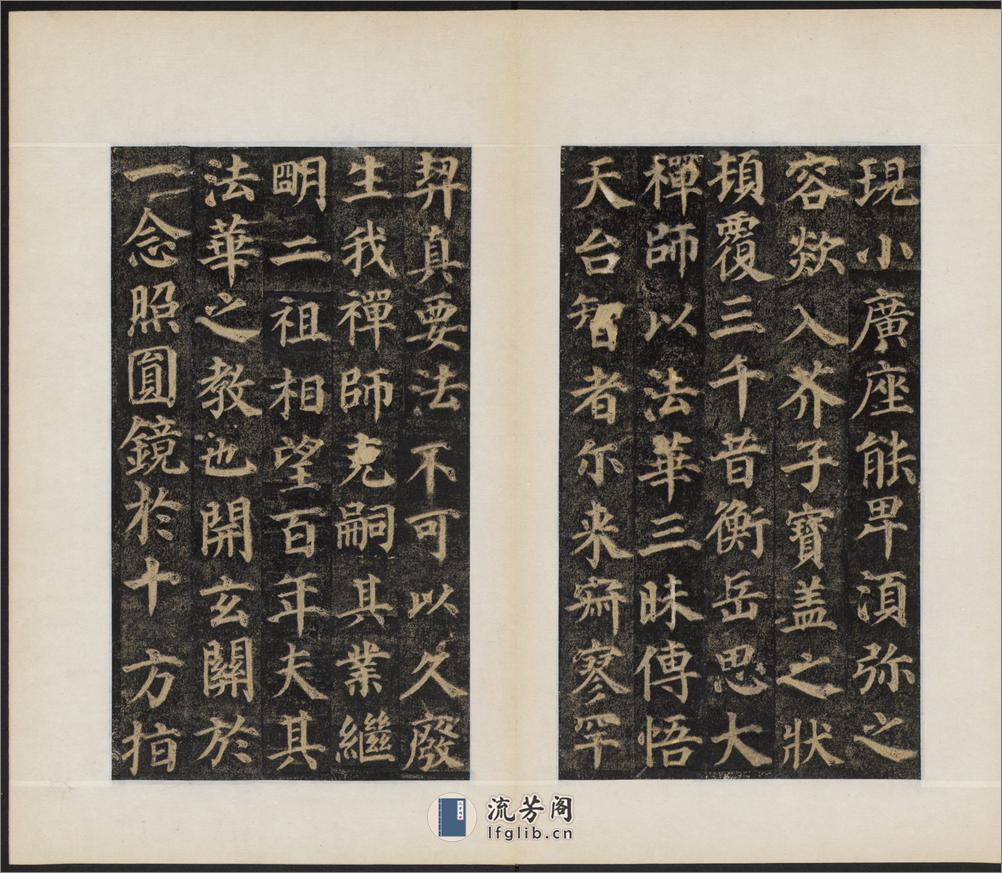 現小廣座能卑湏弥之
容欻入芥子寶盖之狀
頓覆三千昔衡岳思大
禪師以法華三昧傳悟
天台智者尒来寂寥罕
契真要法不可以久廢
生我禪師克嗣其業繼
明二祖相望百年夫其
法華之教也開玄關於
一念照圓鏡於十方指
流芳阁
lfglib.cn